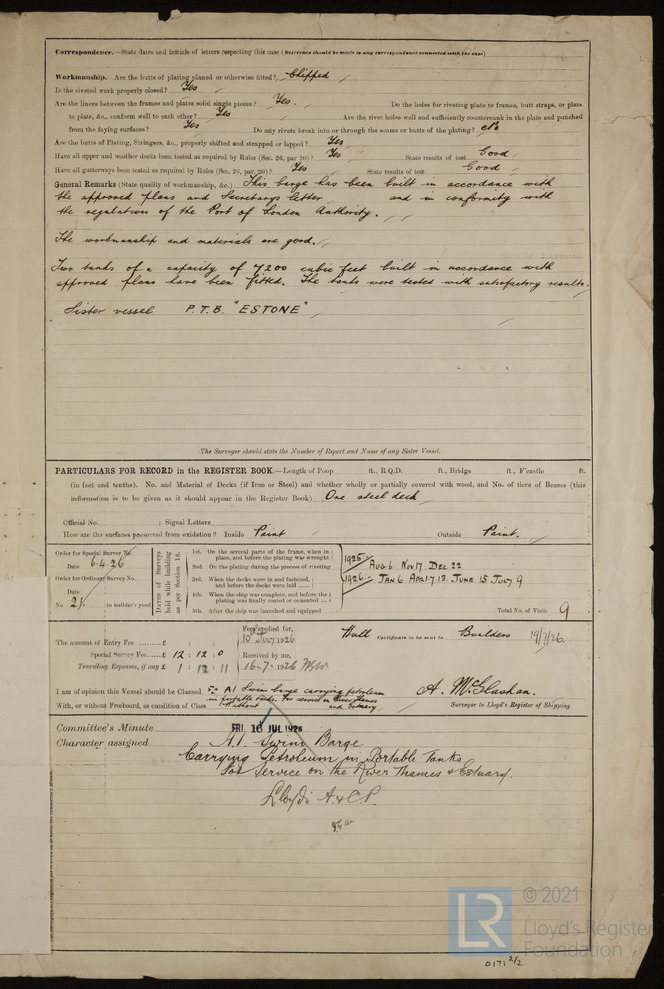 Correspondence.—State dates and initials of letters respecting this case (Reference should be made to any correspondence connected with the case)
Workmanship. Are the butts of plating planed or otherwise fitted? Chipped
Is the riveted work properly closed? Yes
Are the liners between the frames and plates solid single pieces? Yes. Do the holes for riveting plate to frames, butt straps, or plate
to plate, &c., conform well to each other? Yes Are the rivet holes well and sufficiently countersunk in the plate and punched
from the faying surfaces? Yes Do any rivets break into or through the seams or butts of the plating? No
Are the butts of Plating, Stringers, &c., properly shifted and strapped or lapped? Yes
Have all upper and weather decks been tested as required by Rules (Sec. 26, par 20)? Yes State results of test Good
Have all gutterways been tested as required by Rules (Sec. 26, par. 20)? Yes State results of test Good
General Remarks (State quality of workmanship, &c.) This barge has been built in accordance with
the approved plans and Secretarys letter and in conformity with
the regulations of the Port of London Authority.
The workmanship and materials are good.
Two tanks of a capacity of 7200 cubic feet built in accordance with
approved plans have been fitted. The tanks were tested with satisfactory results.
Sister vessel P.T.B. "ESTONE"
The Surveyor should state the Number of Report and Name of any Sister Vessel.
PARTICULARS FOR RECORD in the REGISTER BOOK.—Length of Poop ft., R.Q.D. ft., Bridge ft., F'castle ft.
(in feet and tenths). No. and Material of Decks (if Iron or Steel) and whether wholly or partially covered with wood, and No. of tiers of Beams (this
information is to be given as it should appear in the Register Book) One steel deck
Official No. ; Signal Letters
How are the surfaces preserved from oxidation? Inside Paint Outside Paint.
Order for Special Survey No.
Date 6.4.26
Order for Ordinary Survey No.
Date
No. 21. in builder's yard.
DATES of Surveys held while building as per Section 18.
1st. On the several parts of the frame, when in place, and before the plating was wrought
2nd. On the plating during the process of riveting
3rd. When the decks were in and fastened, and before the decks were laid
4th. When the ship was complete, and before the plating was finally coated or cemented
5th. After the ship was launched and equipped
1925:- AUG 6 NOV 17 DEC 22
1926:- JAN 6 APR 17. 13. JUNE 15 JULY 9
Total No. of Visits 9
The amount of Entry Fee £ : :
Special Survey Fee £ 12 : 12 : 0
Travelling Expenses, if any £ 1 : 12 : 11
Fees applied for,
10 July 1926
Received by me,
16-7-1926
Hull Certificate to be sent to Builders 19/7/26
I am of opinion this Vessel should be Classed A1 Swim barge carrying petroleum
in portable tanks. For service on River Thames
With, or without Freeboard, as condition of Class Without and Estuary
A. McGlashan.
Surveyor to Lloyd's Register of Shipping.
Committee's Minute FRI. 16 JUL 1926
Character assigned A.1. Swim Barge
Carrying Petroleum in Portable Tanks
For Service on the River Thames & Estuary.
Lloyds A & C.P.
LR
© 2021
Lloyd's Register
Foundation
0171 2/2